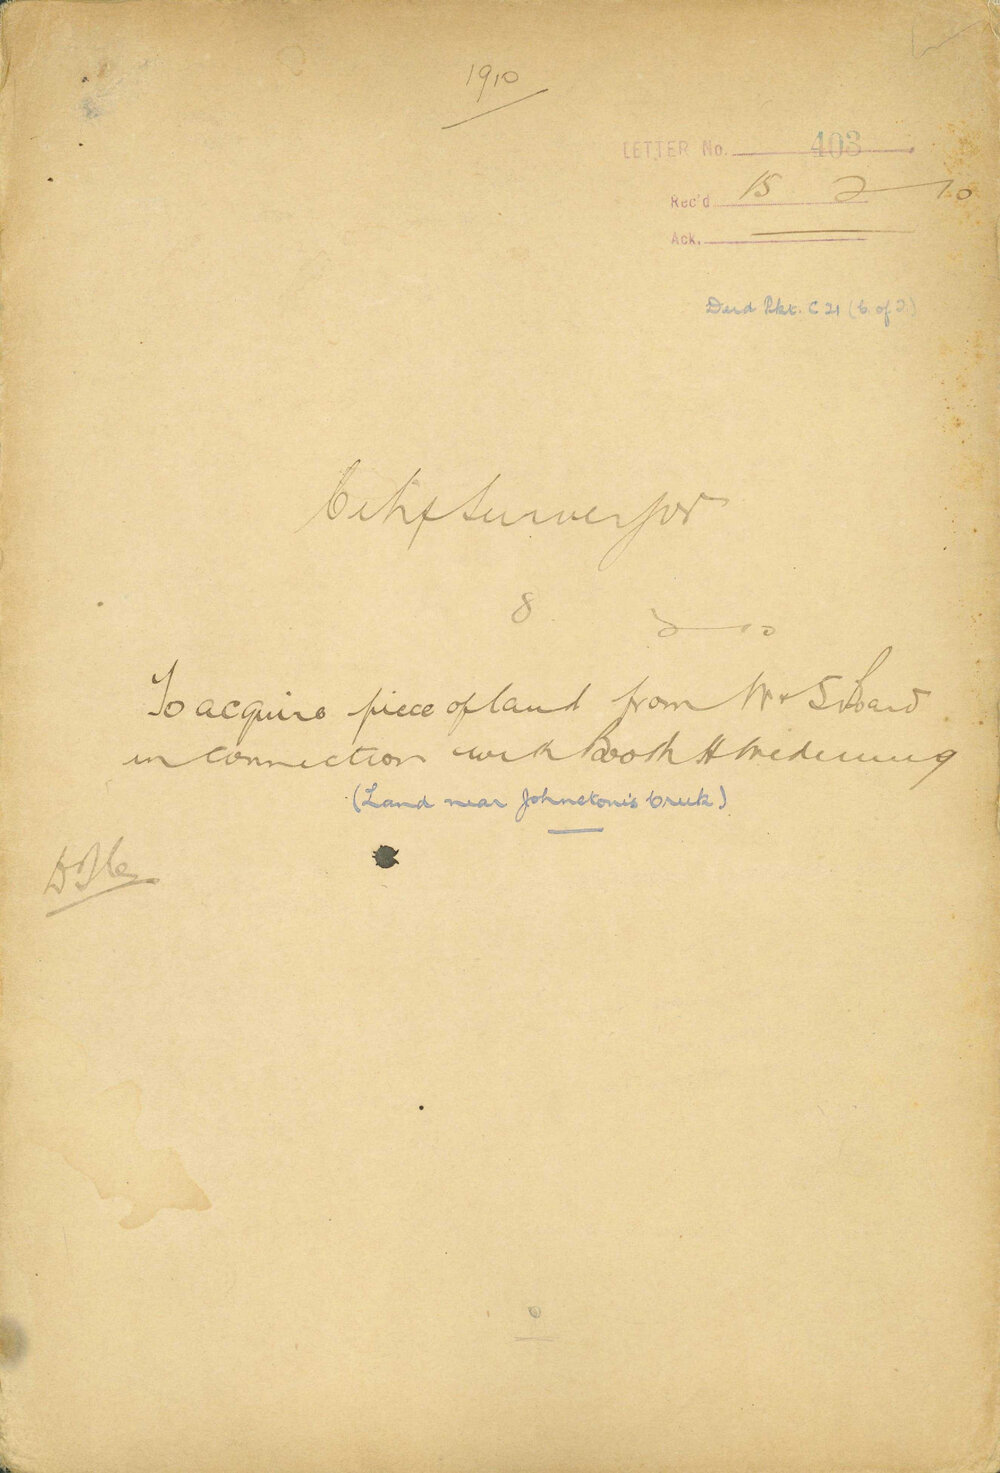 1910
LETTER No. 403
Rec'd 15 2 10
Ack.
Deed Pkt. C 21 ( of 2)
City Surveyor
8 2 10
To acquire piece of land from W & S
in connection with Booth St Widening
(Land near Johnston's Creek)